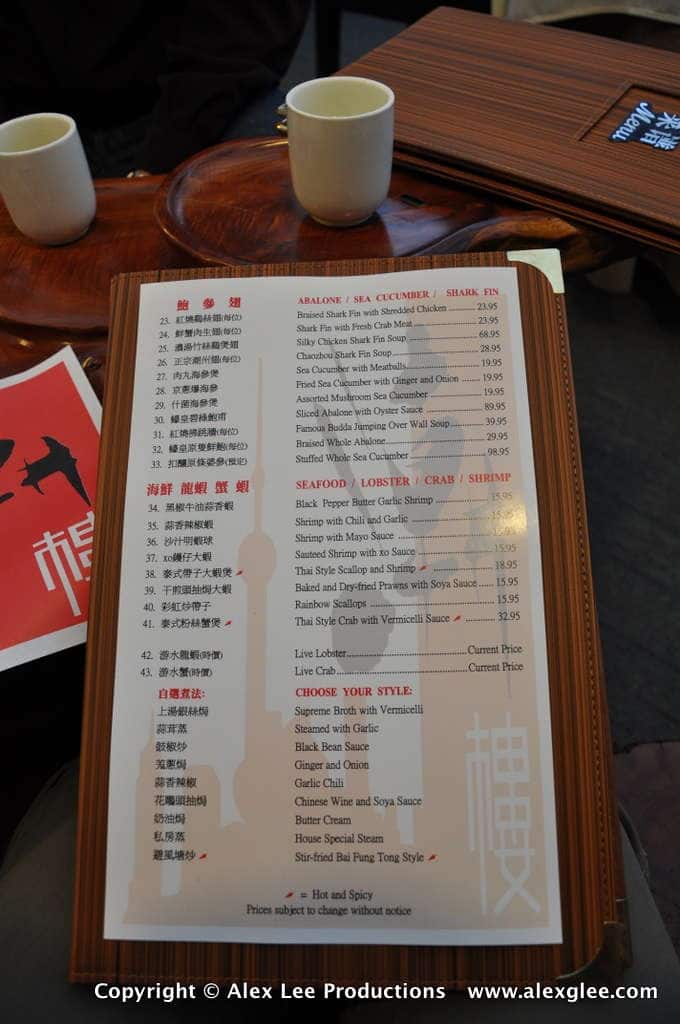 菜譜
Menu
鮑 參 翅 ABALONE / SEA CUCUMBER / SHARK FIN
23. 紅燒鷄絲翅(每位) Braised Shark Fin with Shredded Chicken .......... 23.95
24. 鮮蟹肉生翅(每位) Shark Fin with Fresh Crab Meat .......... 23.95
25. 濃湯竹絲鷄煲翅 Silky Chicken Shark Fin Soup .......... 68.95
26. 正宗潮州翅(每位) Chaozhou Shark Fin Soup .......... 28.95
27. 肉丸海參煲 Sea Cucumber with Meatballs .......... 19.95
28. 京蔥爆海參 Fried Sea Cucumber with Ginger and Onion .......... 19.95
29. 什菌海參煲 Assorted Mushroom Sea Cucumber .......... 19.95
30. 蠔皇碧綠鮑甫 Sliced Abalone with Oyster Sauce .......... 89.95
31. 紅燒佛跳牆(每位) Famous Budda Jumping Over Wall Soup .......... 39.95
32. 蠔皇原隻鮮鮑(每位) Braised Whole Abalone .......... 29.95
33. 扣釀原條婆參(預定) Stuffed Whole Sea Cucumber .......... 98.95
海鮮 龍蝦 蟹 蝦 SEAFOOD / LOBSTER / CRAB / SHRIMP
34. 黑椒牛油蒜香蝦 Black Pepper Butter Garlic Shrimp .......... 15.95
35. 蒜香辣椒蝦 Shrimp with Chili and Garlic .......... 15.95
36. 沙汁明蝦球 Shrimp with Mayo Sauce .......... 15.95
37. xo饊仔大蝦 Sauteed Shrimp with xo Sauce .......... 15.95
38. 泰式帶子大蝦煲 Thai Style Scallop and Shrimp .......... 18.95
39. 干煎頭抽焗大蝦 Baked and Dry-fried Prawns with Soya Sauce ...... 15.95
40. 彩虹炒帶子 Rainbow Scallops .......... 15.95
41. 泰式粉絲蟹煲 Thai Style Crab with Vermicelli Sauce .......... 32.95
42. 游水龍蝦(時價) Live Lobster .......... Current Price
43. 游水蟹(時價) Live Crab .......... Current Price
自選煮法: CHOOSE YOUR STYLE:
上湯銀絲焗 Supreme Broth with Vermicelli
蒜茸蒸 Steamed with Garlic
豉椒炒 Black Bean Sauce
薑蔥焗 Ginger and Onion
蒜香辣椒 Garlic Chili
花雕頭抽焗 Chinese Wine and Soya Sauce
奶油焗 Butter Cream
私房蒸 House Special Steam
避風塘炒 Stir-fried Bai Fung Tong Style
= Hot and Spicy
Prices subject to change without notice
樓
樓
Copyright © Alex Lee Productions www.alexglee.com